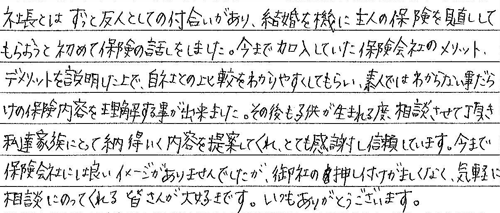 社長とは ずっと友人としての付合いがあり、結婚を機に主人の保険を見直して
もらおうと初めて保険の話しをしました。今まで加入していた保険会社のメリット、
デメリットを説明した上で、自社との比較をわかりやすくしてもらい、素人ではわからない事だら
けの保険内容を理解する事が出来ました。その後も子供が生まれる度、相談させて頂き
私達家族にとって納得いく内容を提案してくれ、とても感謝し信頼しています。今まで
保険会社には良いイメージがありませんでしたが、御社の押し付けがましくなく、気軽に
相談にのってくれる 皆さんが大好きです。いつもありがとうございます。